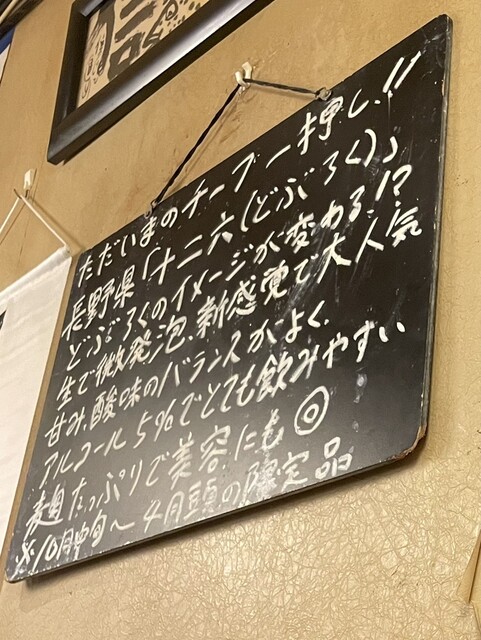 ただいまのチーブー押し!!
長野県「十二六(どぶろく)」
どぶろくのイメージが変わる!?
生で微発泡、新感覚で大人気
甘み、酸味のバランスがよく、
アルコール5%でとても飲みやすい
麹たっぷりで美容にも◎
※10月中旬〜4月頭の限定品